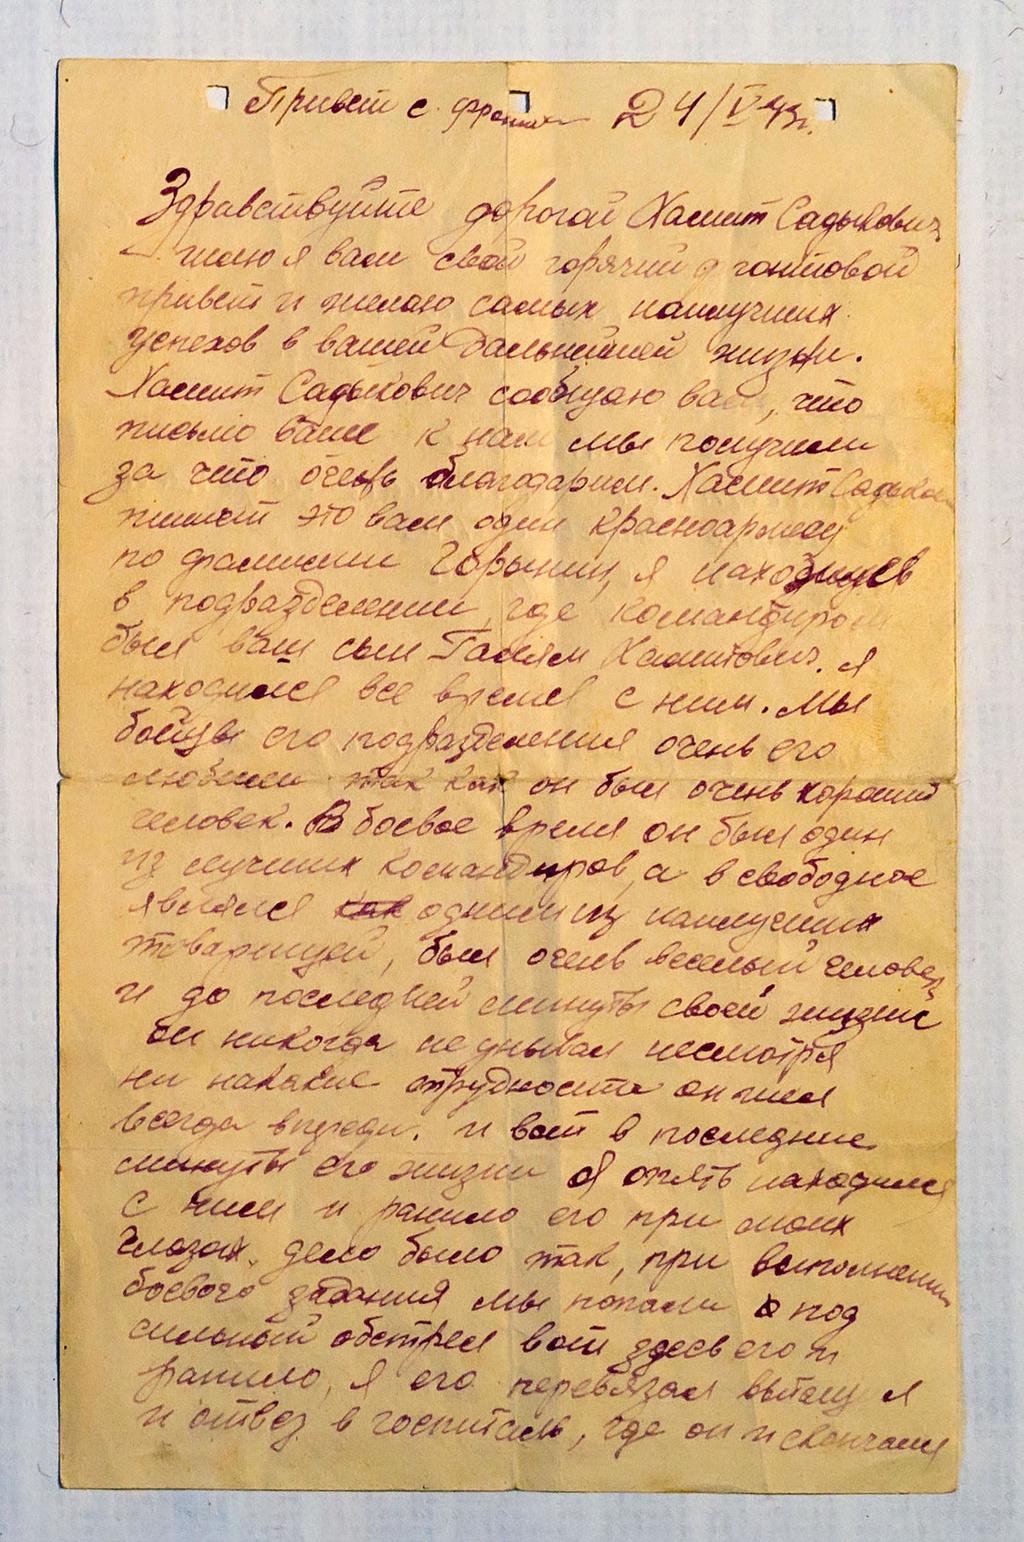 Привет с фронта 24/V 43г.
Здравствуйте дорогой Хамит Садыкович
шлю я вам свой горячий фронтовой
привет и желаю самых наилучших
успехов в вашей дальнейшей жизни.
Хамит Садыкович сообщаю вам, что
письмо ваше к нам мы получили
за что очень благодарим. Хамит Садыков
пишет это вам один красноармеец
по фамилии Горынин, я находился
в подразделении, где командиром
был ваш сын Галям Хамитович. я
находился все время с ним. Мы
бойцы его подразделения очень его
любили так как он был очень хороший
человек. В боевое время он был один
из лучших командиров, а в свободное
являлся как одним из наилучших
товарищей, был очень веселый человек
и до последней минуты своей жизни
он никогда не унывал несмотря
ни накакие трудности он шел
всегда впереди. и вот в последние
минуты его жизни я опять находился
с ним и ранило его при моих
глазах. дело было так, при выполнении
боевого задания мы попали под
сильный обстрел вот здесь его и
ранило, я его перевязал вытащил
и отвез в госпиталь, где он и скончался